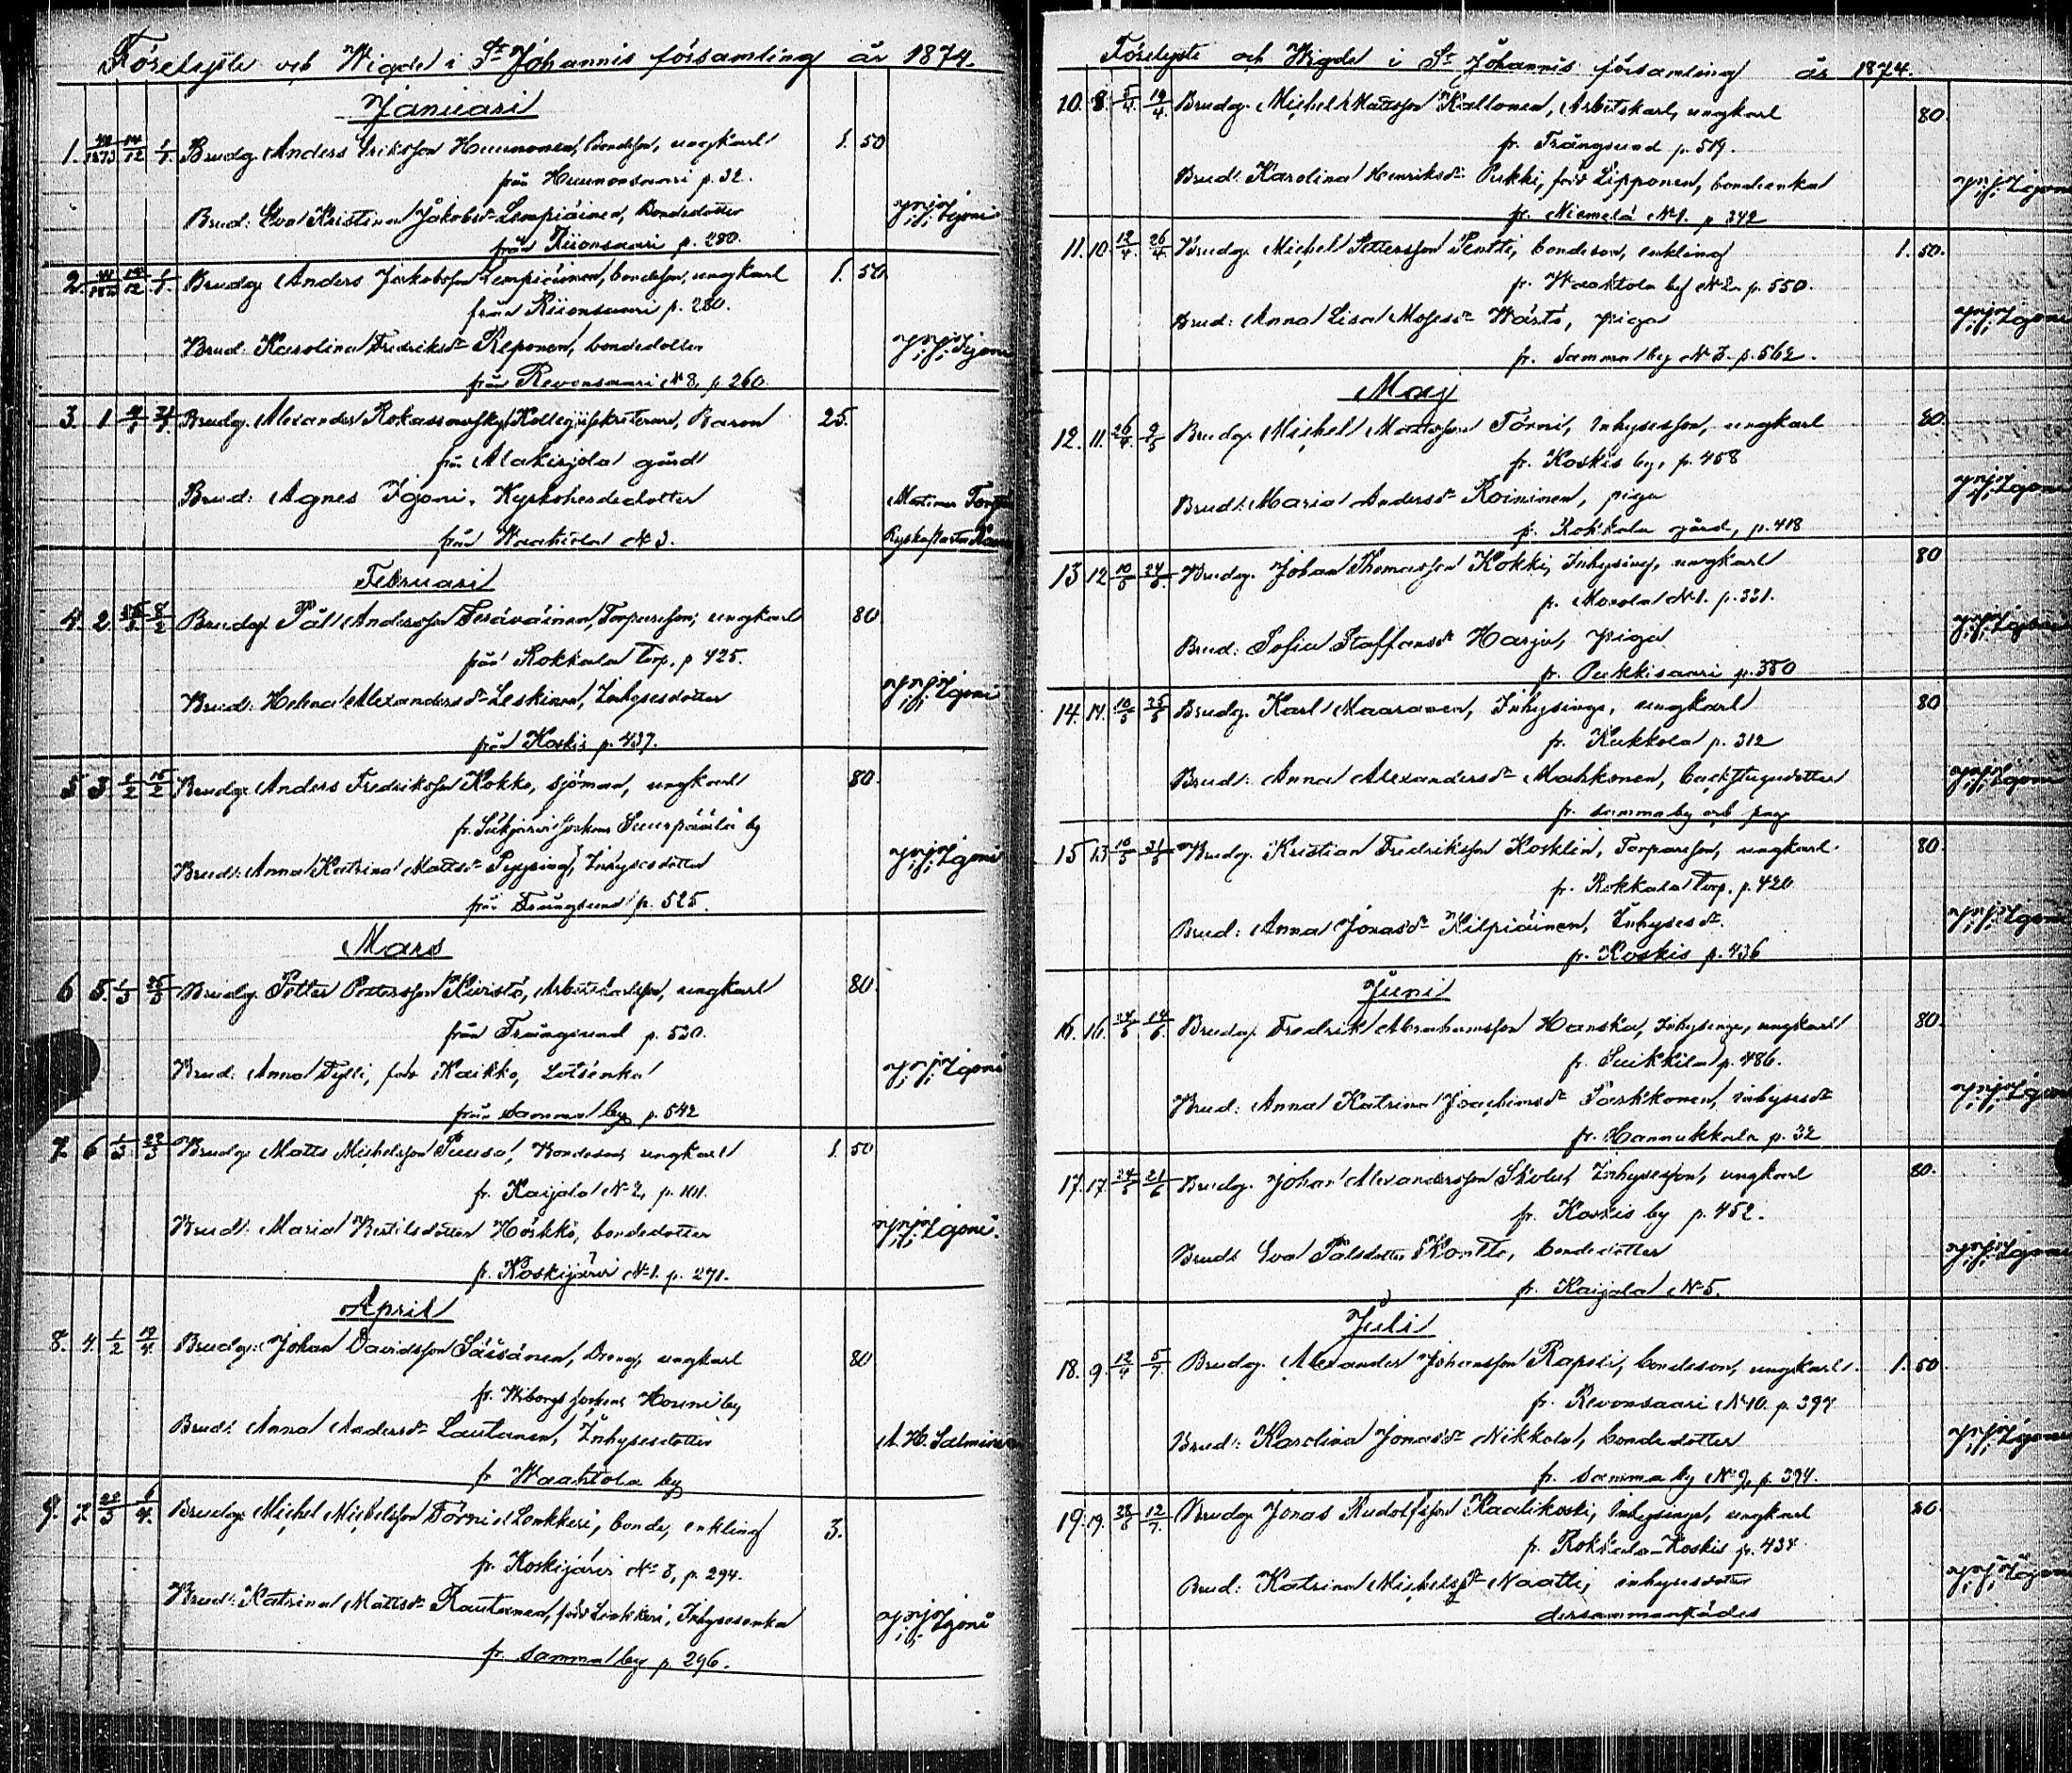 Förelyste och Wigde i St Johannis församling år 1874.
Januari
1. 44/1873 14/12 1/1 Brudg. Anders Eriksson Huunonen, bondeson, ungkarl 1. 50
från Huunonsaari p. 32.
Brud: Eva Kristina Jakobsdr Lempiäinen, Bondedotter Igoni
från Kiionsaari p. 280.
2. 14/12 1/1 Brudg. Anders Jakobsson Lempiäinen, bondeson, ungkarl 1. 50
från Kiionsaari p. 280.
Brud: Karolina Fredriksdr Reponen, bondedotter Igoni
från Revonsaari N 8, p. 260.
3. 1 Brudg. Alexander Rokassowsky, Kollegiisekreterare, Baron 25.
från Alakirjola gård
Brud: Agnes Igoni, Kyrkoherdedotter
från Waahtola N 3.
Februari
4. 2. 8/2 Brudg. Pål Andersson Teräväinen, Torpareson, ungkarl 80
från Rokkala Torp, p. 425.
Brud: Helena Alexandersdr Leskinen, Inhysesdotter Igoni
från Koskis p. 437.
5 3 15/2 Brudg. Anders Fredriksson Kokko, sjöman, ungkarl 80.
fr. Säkjärvi Sockens by
Brud: Anna Katrina Mattsdr Pipping, Inhysesdotter Igoni
från Trångsund p. 525.
Mars
6 5. 1/3 25/3 Brudg. Petter Pettersson Kivistö, Arbetskarlsson, ungkarl 80.
från Trångsund p. 530.
Brud: Anna Tylli, född Kaikko, Lotsenka Igoni
från samma by p. 542
7. 6 1/3 29/3 Brudg. Matts Michelsson Puusa, Bondeson, ungkarl 1. 50
fr. Kaijala N 2, p. 101.
Brud: Maria Bertilsdotter Hörkkö, bondedotter Igoni.
fr. Koskijärvi N 1. p. 271.
April
8. 4. 1/2 19/4 Brudg: Johan Davidsson Säisänen, Dreng, ungkarl 80
fr. Wiborgs sockens Houni by
Brud: Anna Andersdr Lautanen, Inhysesdotter A. H. Salminen
fr Waahtola by
9. 7. 22/3 6/4. Brudg. Michel Michelsson Törni el Lonkkeri, bonde, enkling 3.
fr. Koskijärvi N 8, p. 294.
Brud: Katrina Mattsdr Rautanen, född Lonkkeri, Inhysesenka Igoni
fr. samma by p. 296.
Förelyste och Wigde i St Johannis församling år 1874.
10. 8 5/4 19/4. Brudg. Michel Mattsson Kallonen, Arbetskarl, ungkarl 80.
fr. Trångsund p. 519.
Brud: Karolina Henriksdr Pukki, född Lipponen, bondeenka Igoni
fr. Niemelä N 1. p. 342
11. 10. 12/4. 26/4. Brudg. Michel Pettersson Pentti, bondeson, enkling 1. 50.
fr. Waahtola by N 2. p. 550.
Brud: Anna Lisa Mosesdr Wärtö, piga Igoni
fr. samma by N 3. p. 562.
Maj
12. 11. 26/4. 9/5 Brudg. Michel Mattsson Törni, Inhysesson, ungkarl 80.
fr. Koskis by, p. 458
Brud: Maria Andersdr Roininen, piga Igoni
fr. Rokkala gård, p. 418
13 12 10/5 24/5. Brudg. Johan Thomasson Kokki, Inhysing, ungkarl 80
fr. Marola N 1. p. 331.
Brud: Sofia Staffansdr Harju, piga Igoni
fr. Pukkisaari p. 350
14. 14. 10/5 25/5 Brudg. Karl Maaranen, Inhysinge, ungkarl 80
fr. Kukkola p. 312
Brud: Anna Alexandersdr Mahkonen, backstugudotter Igoni
fr. samma by och pag
15 13 10/5 31/5 Brudg. Kristian Fredriksson Kosklin, Torpareson, ungkarl. 80.
fr. Rokkala Torp. p. 420
Brud: Anna Jonasdr Kilpiäinen, Inhysesdr Igoni
fr. Koskis p. 436
Juni
16. 16. 24/5 14/6. Brudg. Fredrik Abrahamsson Hanska, Inhysinge, ungkarl 80.
fr. Suikkila p. 486.
Brud: Anna Katrina Joachimsdr Parkkonen, inhysesdr Igoni
fr. Hannukkala p. 32
17. 17. 24/5 21/6 Brudg. Johan Alexandersson Skolut, Inhysesson, ungkarl 80.
fr. Koskis by p. 452.
Brud: Eva Pålsdotter Kontto, bondedotter Igoni
fr. Kaijala N 5.
Juli
18. 9. 12/4 5/7. Brudg. Alexander Johansson Rapeli, bondeson, ungkarl. 1. 50.
fr. Revonsaari N 10. p. 397
Brud: Karolina Jonasdr Nikkola, bondedotter Igoni
fr. samma by N 9, p. 394.
19. 19. 12/7. Brudg. Jonas Rudolfsson Kaalikoski, Inhysinge, ungkarl 80.
fr. Rokkala-Koskis p. 438
Brud: Katrina Michelsdr Naatti, inhysesdotter Igoni
dersammastädes